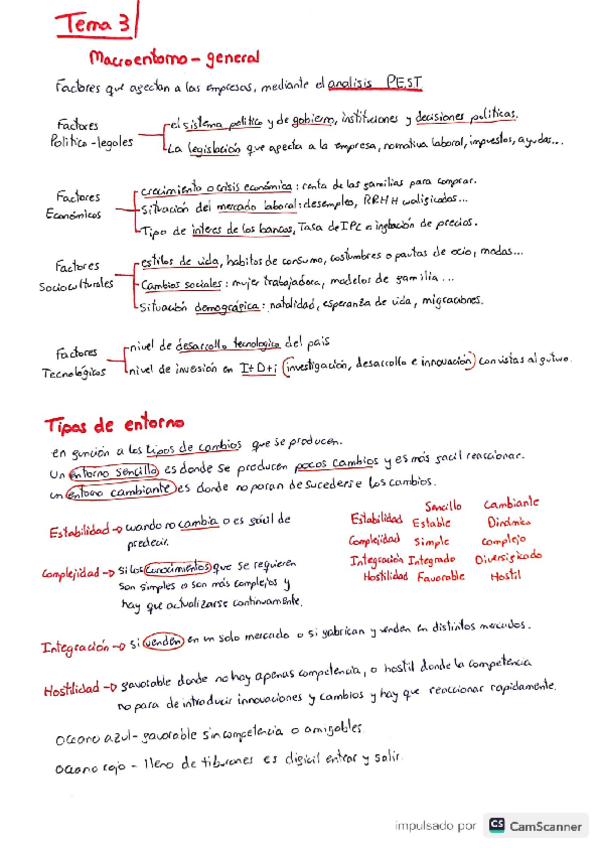 Tema 3
Macroentorno - general
Factores que afectan a las empresas, mediante el analisis PEST
Factores Politico-legales
el sistema politico y de gobierno, instituciones y decisiones politicas.
La legislación que afecta a la empresa, normativa laboral, impuestos, ayudas...
Factores Económicos
crecimiento o crisis económica: renta de las familias para comprar.
Situación del mercado laboral: desempleo, RRHH cualificados...
Tipo de interes de los bancos, Tasa de IPC o inflación de precios.
Factores Socioculturales
estilos de vida, habitos de consumo, costumbres o pautas de ocio, modas...
Cambios sociales: mujer trabajadora, modelos de familia...
Situación demográfica: natalidad, esperanza de vida, migraciones.
Factores Tecnológicos
nivel de desarrollo tecnologico del pais
nivel de inversión en I+D+i (investigación, desarrollo e innovación) con vistas al futuro.
Tipos de entorno
en función a los tipos de cambios que se producen.
Un entorno sencillo es donde se producen pocos cambios y es más facil reaccionar.
un entorno cambiante es donde no paran de sucederse los cambios.
Estabilidad → cuando no cambia o es fácil de
predecir.
Complejidad → si los conocimientos que se requieren
son simples o son más complejos y
hay que actualizarse continuamente.
Sencillo Cambiante
Estabilidad Estable
Complejidad Simple complejo
Integración Integrado Diversificado
Hostilidad Favorable Hostil
Integración → si venden en un solo mercado o si fabrican y venden en distintos mercados.
Hostilidad → favorable donde no hay apenas competencia, o hostil donde la competencia
no para de introducir innovaciones y cambios y hay que reaccionar rapidamente.
Oceano azul - favorable sin competencia o amigables.
Oceano rojo - lleno de tiburones es dificil entrar y salir.
impulsado por CS CamScanner